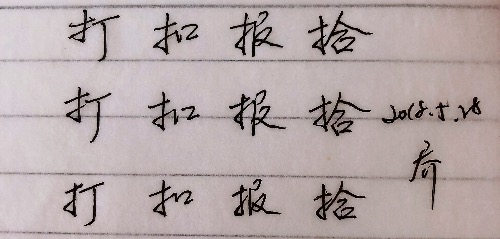 打 扣 报 拾
打 扣 报 拾
2018.5.28
打 扣 报 拾